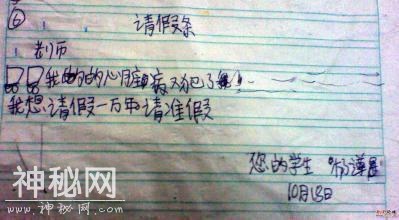 ⑥ 请假条
老师
我的的心脏病又犯了
我想请假一万年请准假
您的学生
10月18日
神秘网
www.uux.cn